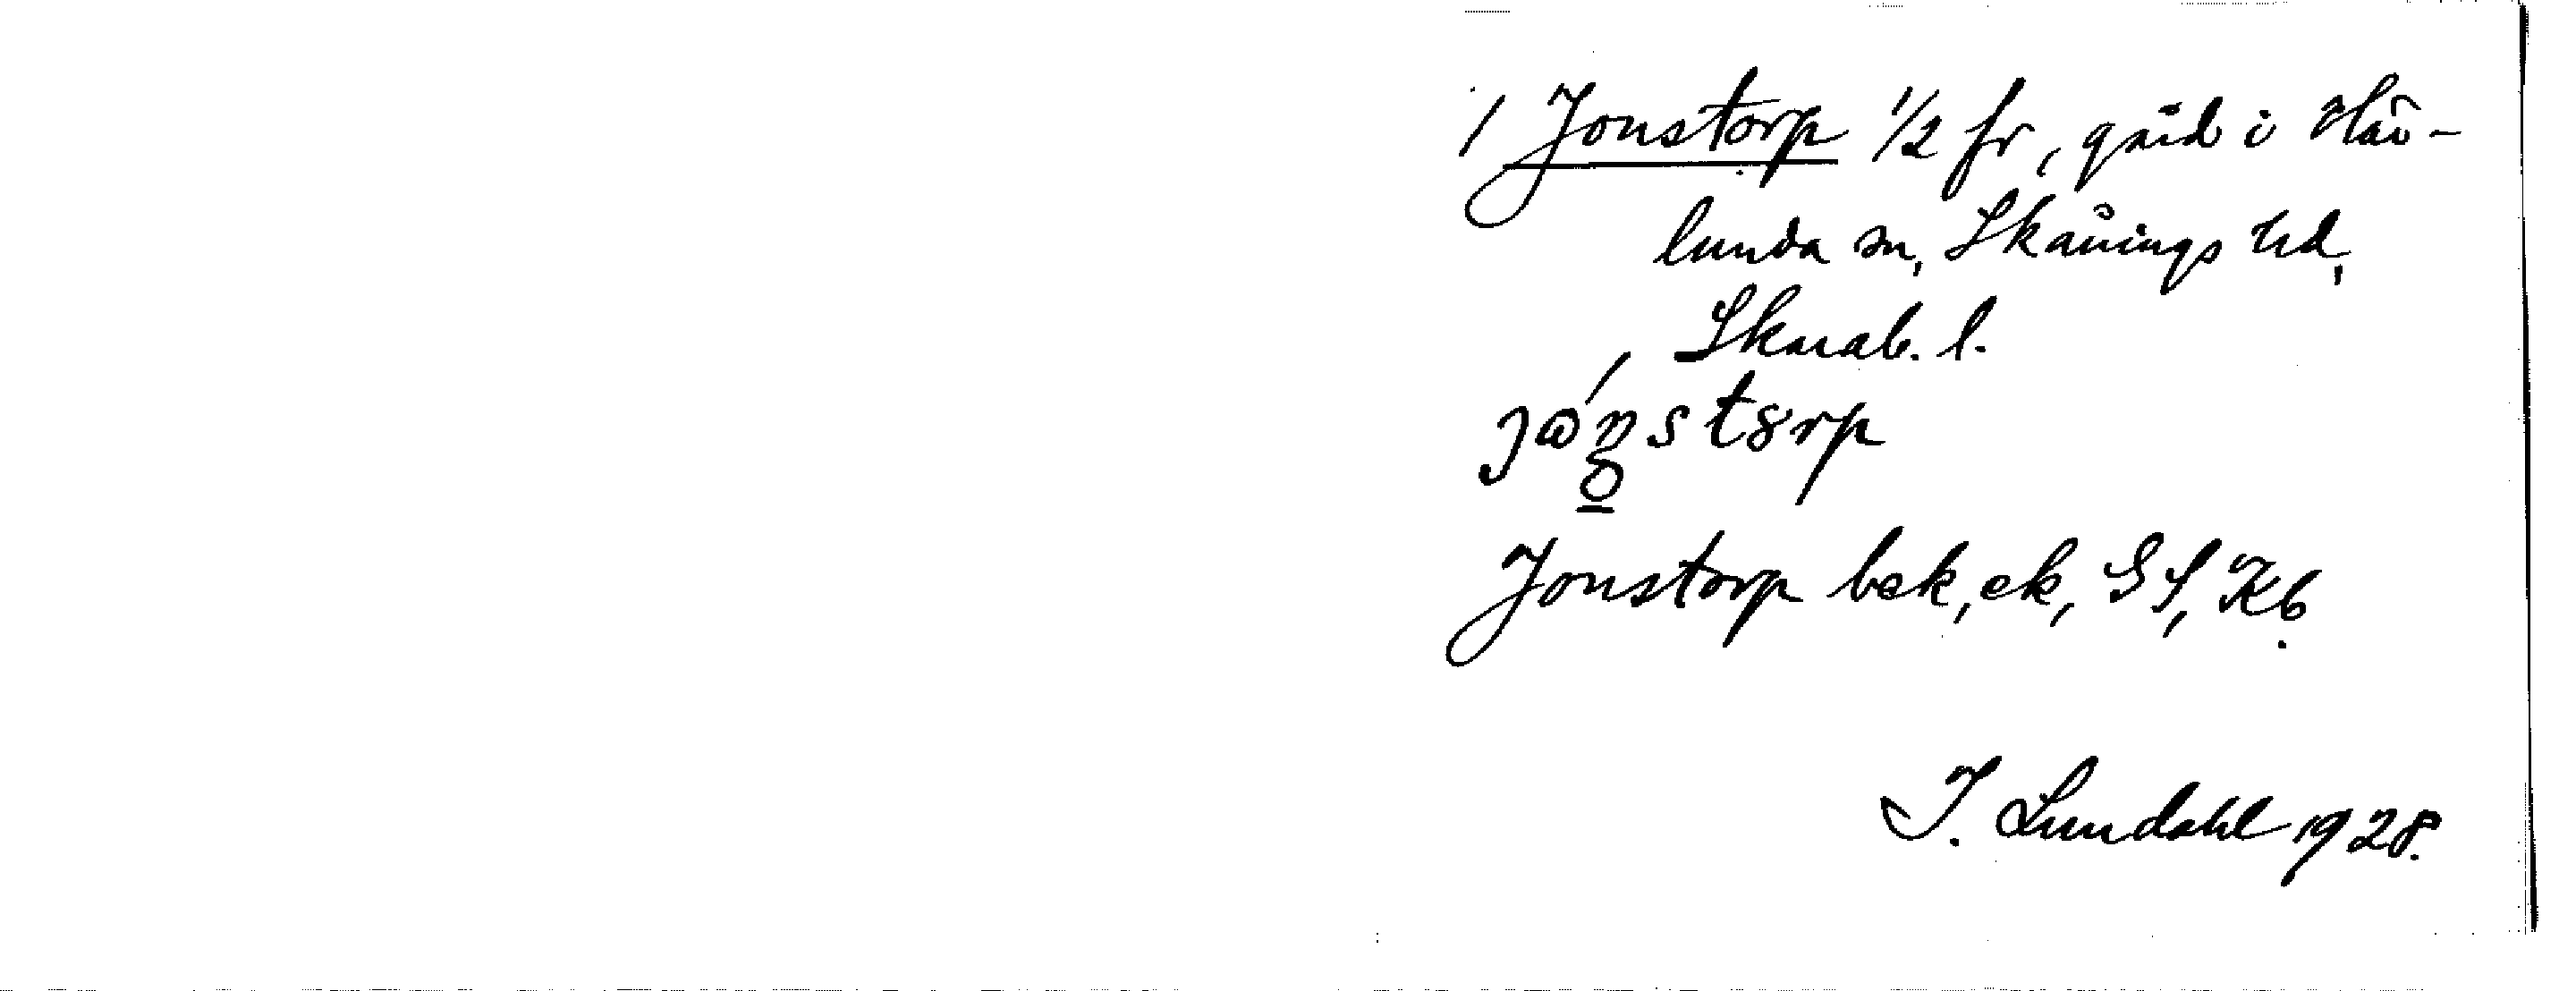 1 Jonstorp 1/2 fr, gård i Här-
lunda sn, Skånings hd,
Skarab. l.
Jonstorp bek, ek, GS, Kb.
I. Lundahl 1928.